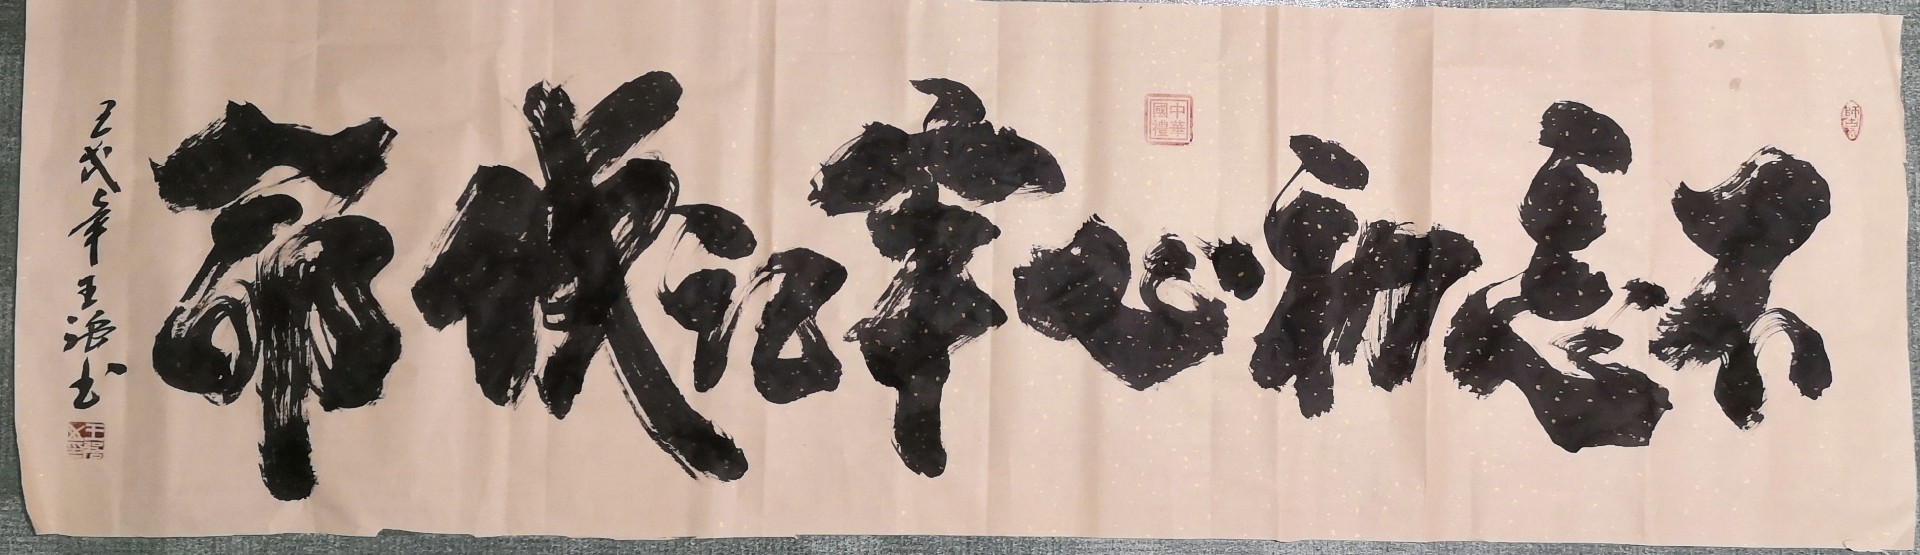 不忘初心牢记使命
中華國禮
戊年王浪书